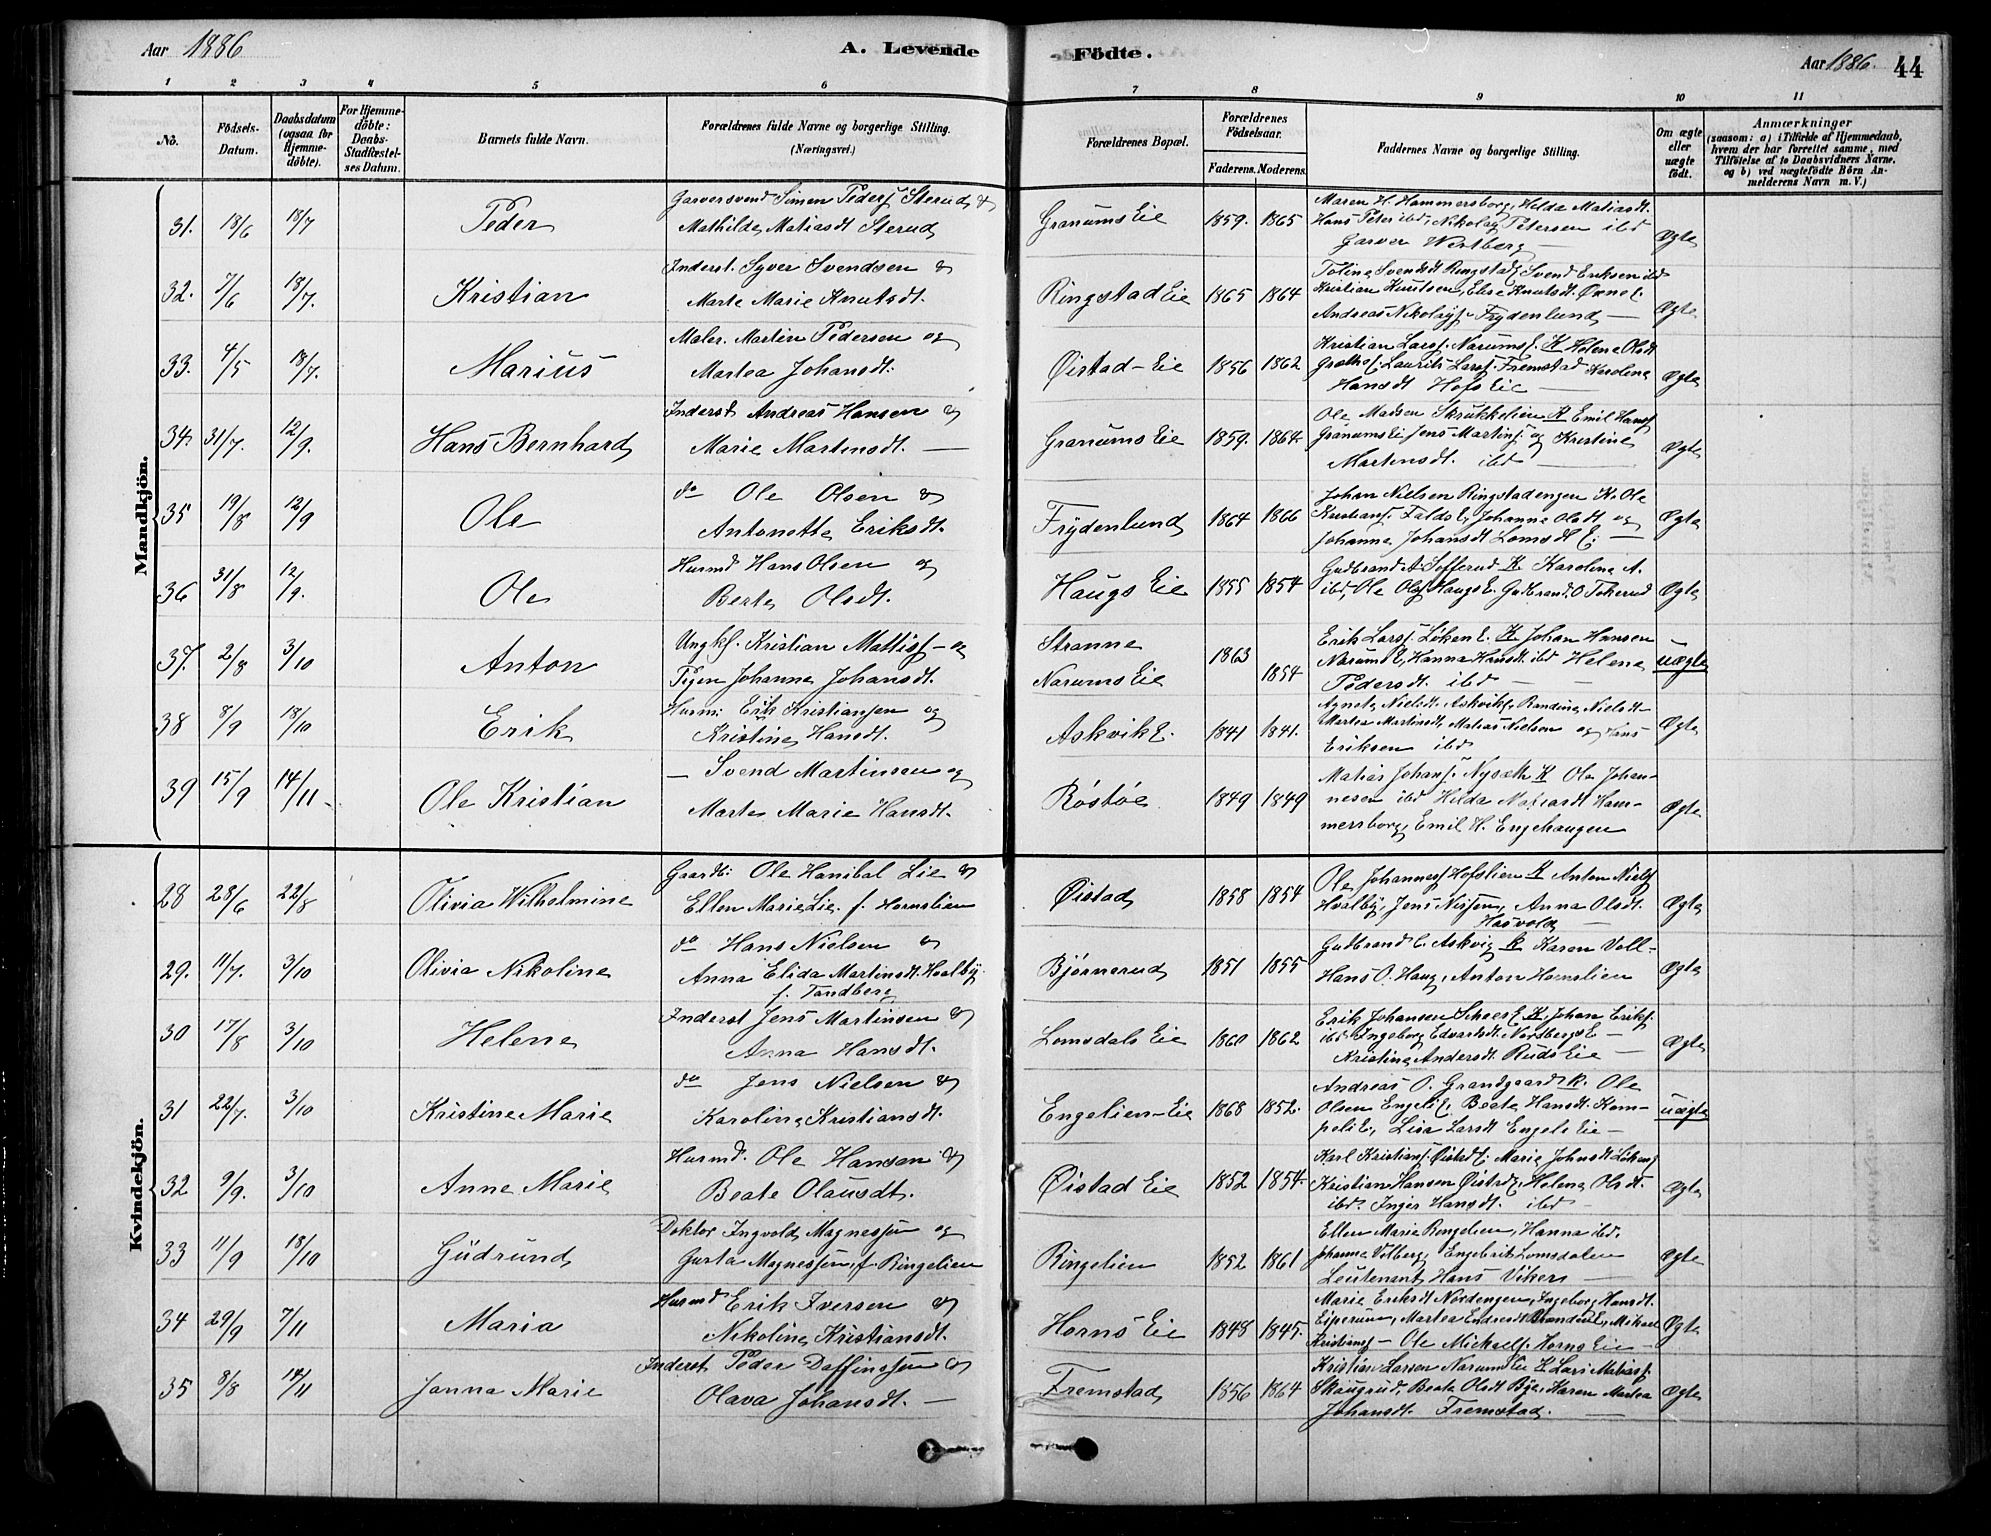 Aar 1886
A. Levende
Födte.
Aar 1886.
44
1 2 3 4 5 6 7 8 9 10 11
No.
Födsels-
Datum.
Daabsdatum
(ogsaa for
Hjemme-
döbte).
For Hjemme-
döbte:
Daabs-
Stadfæstel-
ses Datum.
Barnets fulde Navn.
Forældrenes fulde Navne og borgerlige Stilling.
(Næringsvei.)
Forældrenes Bopæl.
Forældrenes
Födselsaar.
Faderens. Moderens.
Faddernes Navne og borgerlige Stilling.
Om ægte
eller
uægte
födt.
Anmærkninger
(saasom: a) i Tilfælde af Hjemmedaab,
hvem der har forrettet samme, med
Tilföielse af to Daabsvidners Navne,
og b) ved uægtefödte Börn An-
melderens Navn m. V.)
Mandkjön.
31. 18/6 18/7 Peder
Garversvend Simen Peders Sterud &
Mathilde Matiasdt Sterud
Granums Eie 1859. 1865
Maren H. Hammersborg, Helda Matiasdt.
Hans Peter ibd, Nikolay Petersen ibd
Garver Westberg
Ægte
32. 7/6 18/7. Kristian
Inderst. Syver Svendsen &
Marte Marie Knutsdt.
Ringstad Eie 1865 1864
Toline Svendsdt Ringstad, Svend Eriksen ibd
Kristian Knutsen, Else Knutsdt.
Andreas Nikolays. Frydenlund
Ægte
33. 4/5 18/7. Marius
Maler. Martin Pedersen og
Martea Johansdt.
Øistad-Eie 1856 1862
Kristian Larss. Narums. K Helene Olsdt
Laurits Larss. Fremstad Karoline
Hansdt Hofs Eie
Ægte
34. 31/7. 12/9. Hans Bernhard
Inderst Andreas Hansen &
Marie Martinsdt.
Granums Eie 1859. 1864.
Ole Madsen Skrukkelien K Emil Hans
Granums Ei Jens Martins. og Kristine
Martinsdt. ibd
Ægte
35 19/8 12/9 Ole
do Ole Olsen &
Antonette Eriksdt.
Frydenlund 1864 1866
Johan Nielsen Ringstadengen K. Ole
Kristians. Falds E, Johanne Olsdt og
Johanne Johansdt Lomsdl E.
Ægte
36 31/8 12/9. Ole
Husmd Hans Olsen og
Berte Olsdt.
Haugs Eie 1855 1854
Gudbrand A. Sefferud K Karoline A.
ibd, Ole Ols Haugs E. Gudbrand O Tokerud
Ægte
37. 2/8 3/10 Anton
Ungkf. Kristian Mattis - og
Pigen Johanne Johansdt.
Stranne
Narums Eie
1863 1854
Erik Larss. Løken E. K Johan Hansen
Narum E, Hanna Hansdt ibd Helene
Pedersdt. ibd
Uægte
38 8/9 18/10 Erik
Husm: Erik Kristiansen og
Kristine Hansdt.
Askvik E. 1841 1841.
Agnete Nielsdt. Askvik, Randine Nielsdt
Martea Martinsdt, Matias Nielsen og Hans
Eriksen ibd
Ægte
39 15/9 14/11 Ole Kristian
— Svend Martinsen og
Marte Marie Hansdt.
Røstøe 1849 1849
Matias Johans. Nysæth K Ole Johan-
nesen ibd Hilda Matiasdt Ham-
mersborg, Emil H. Engehaugen
Ægte
Kvindekjön.
28 28/6 22/8 Olivia Wilhelmine
Gaardb: Ole Hanibal Lie &
Ellen Marie Lie. f. Hornslien
Øistad 1858 1854
Ole Johanness Hofslien K Anton Niels
Hvalby, Jens Anna Olsdt.
Hasvold
Ægte
29. 11/7. 3/10 Olivia Nikoline
do Hans Nielsen &
Anna Elida Martinsdt. Hvalby.
f. Tandberg
Bjørnerud 1851 1855
Gudbrand C. Askvig K Karen Voll-
Hans O. Haug, Anton Hornslien
Ægte
30 17/8 3/10 Helene
Inderst Jens Martinsen &
Anna Hansdt.
Lomsdals Eie 1860 1862
Erik Johansen K. Johan Eriks.
ibd Ingeborg Edvardsdt. Nordbergs E
Kristine Andersdt. Ruds Eie
Ægte
31 22/7. 3/10 Kristine Marie
do Jens Nielsen &
Karoline Kristiansdt.
Engelien-Eie 1868 1852.
Andreas O. Grandgaard K. Ole
Olsen Engeli E. Beate Hansdt. Kom-
peli E, Lisa Larsdt Engeli Eie
Uægte
32 9/9. 3/10 Anne Marie
Husmd. Ole Hansen &
Beate Olausdt.
Øistad Eie 1852 1854.
Karl Kristians. Øistad E: Marie Johnsdt Løken
Kristian Hansen Øistad E, Helene Olsdt.
ibd. Inger Hansdt. ibd
Ægte
33 11/9 18/10 Gudrund
Doktor Ingvold Magnessen og
Gusta Magnessen f. Ringelien
Ringelien 1852 1861
Ellen Marie Ringelien, Hanna ibd.
Johanne Volberg, Engebrik Lomsdalen
Leutenant Hans Viker
Ægte
34 29/9 7/11 Maria
Husmd Erik Iversen &
Nikoline Kristiansdt.
Horns Eie 1848 1845.
Marie Eriksdt Nordengen, Ingeborg Hansdt.
Eiperum, Martea Endresdt Brandeli E, Mikael
Kristians - Ole Mickaels. Horns Eie
Ægte
35 8/8 14/11 Janna Marie
Inderst Peder Daffinssen &
Olava Johansdt.
Fremstad 1856 1864
Kristian Larsen Narums Eie K Lars Matias.
Skaugrud, Beate Olsdt Bye, Karen Martea
Johansdt. Fremstad.
Ægte